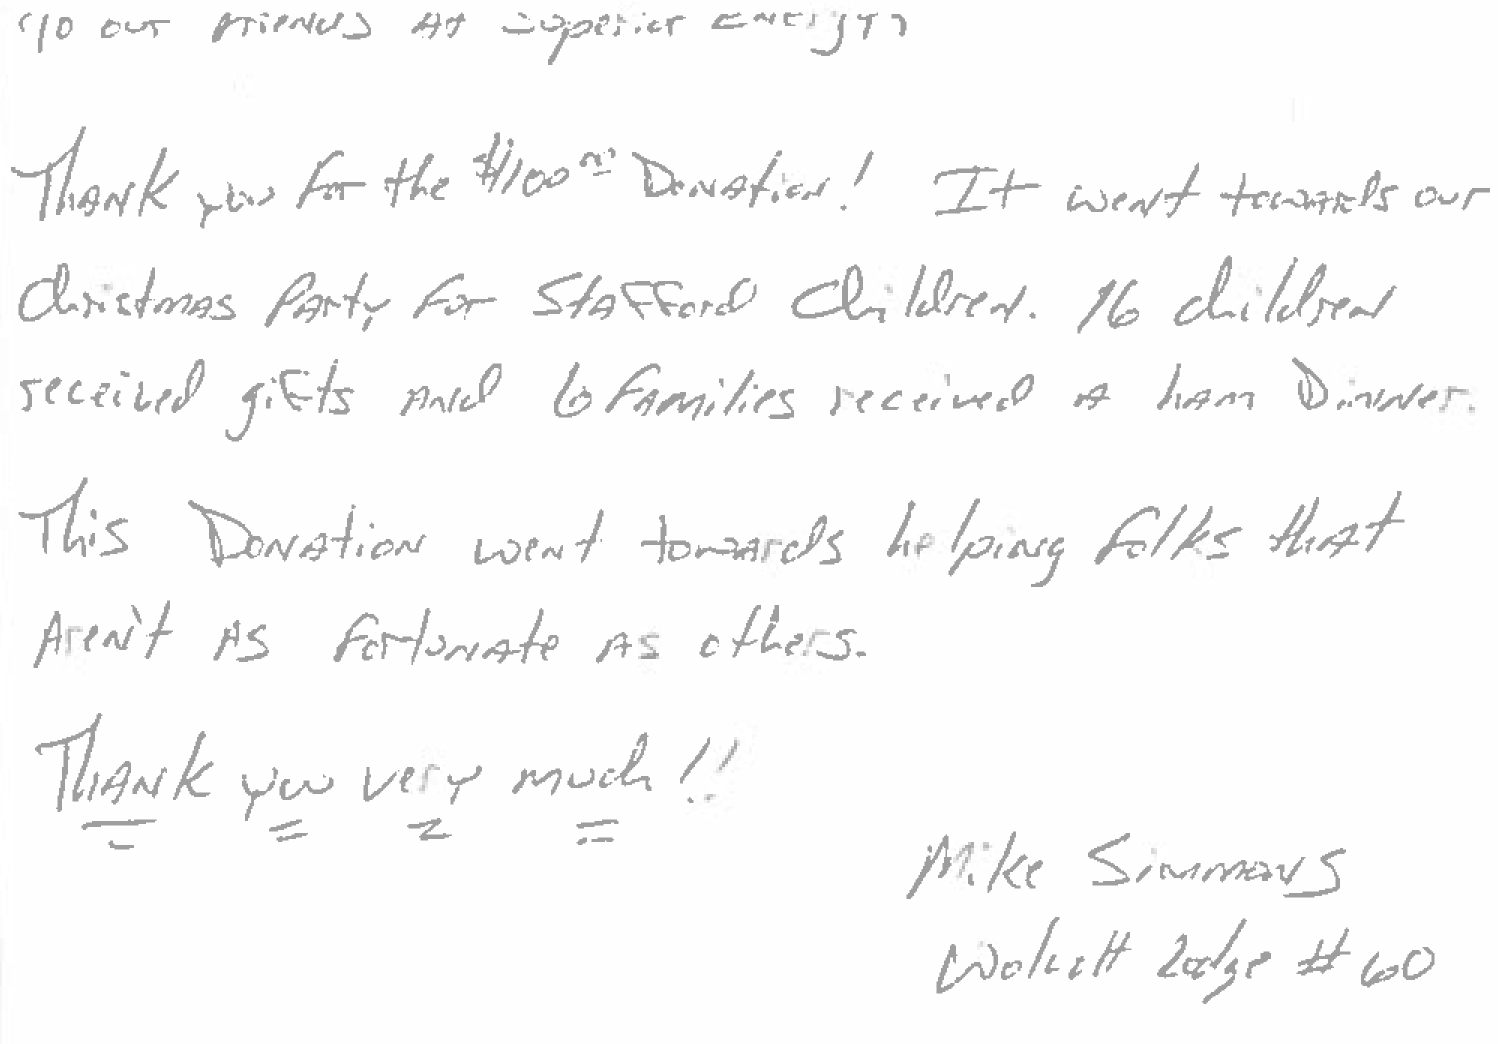 To our friends At Superior Energy,
Thank you for the $100 00 Donation! It went towards our
Christmas Party for Stafford Children. 16 children
received gifts and 6 families received a ham Dinner.
This Donation went towards helping folks that
Aren't As fortunate As others.
Thank you very much!!
Mike Simmons
Wolcott Lodge #60